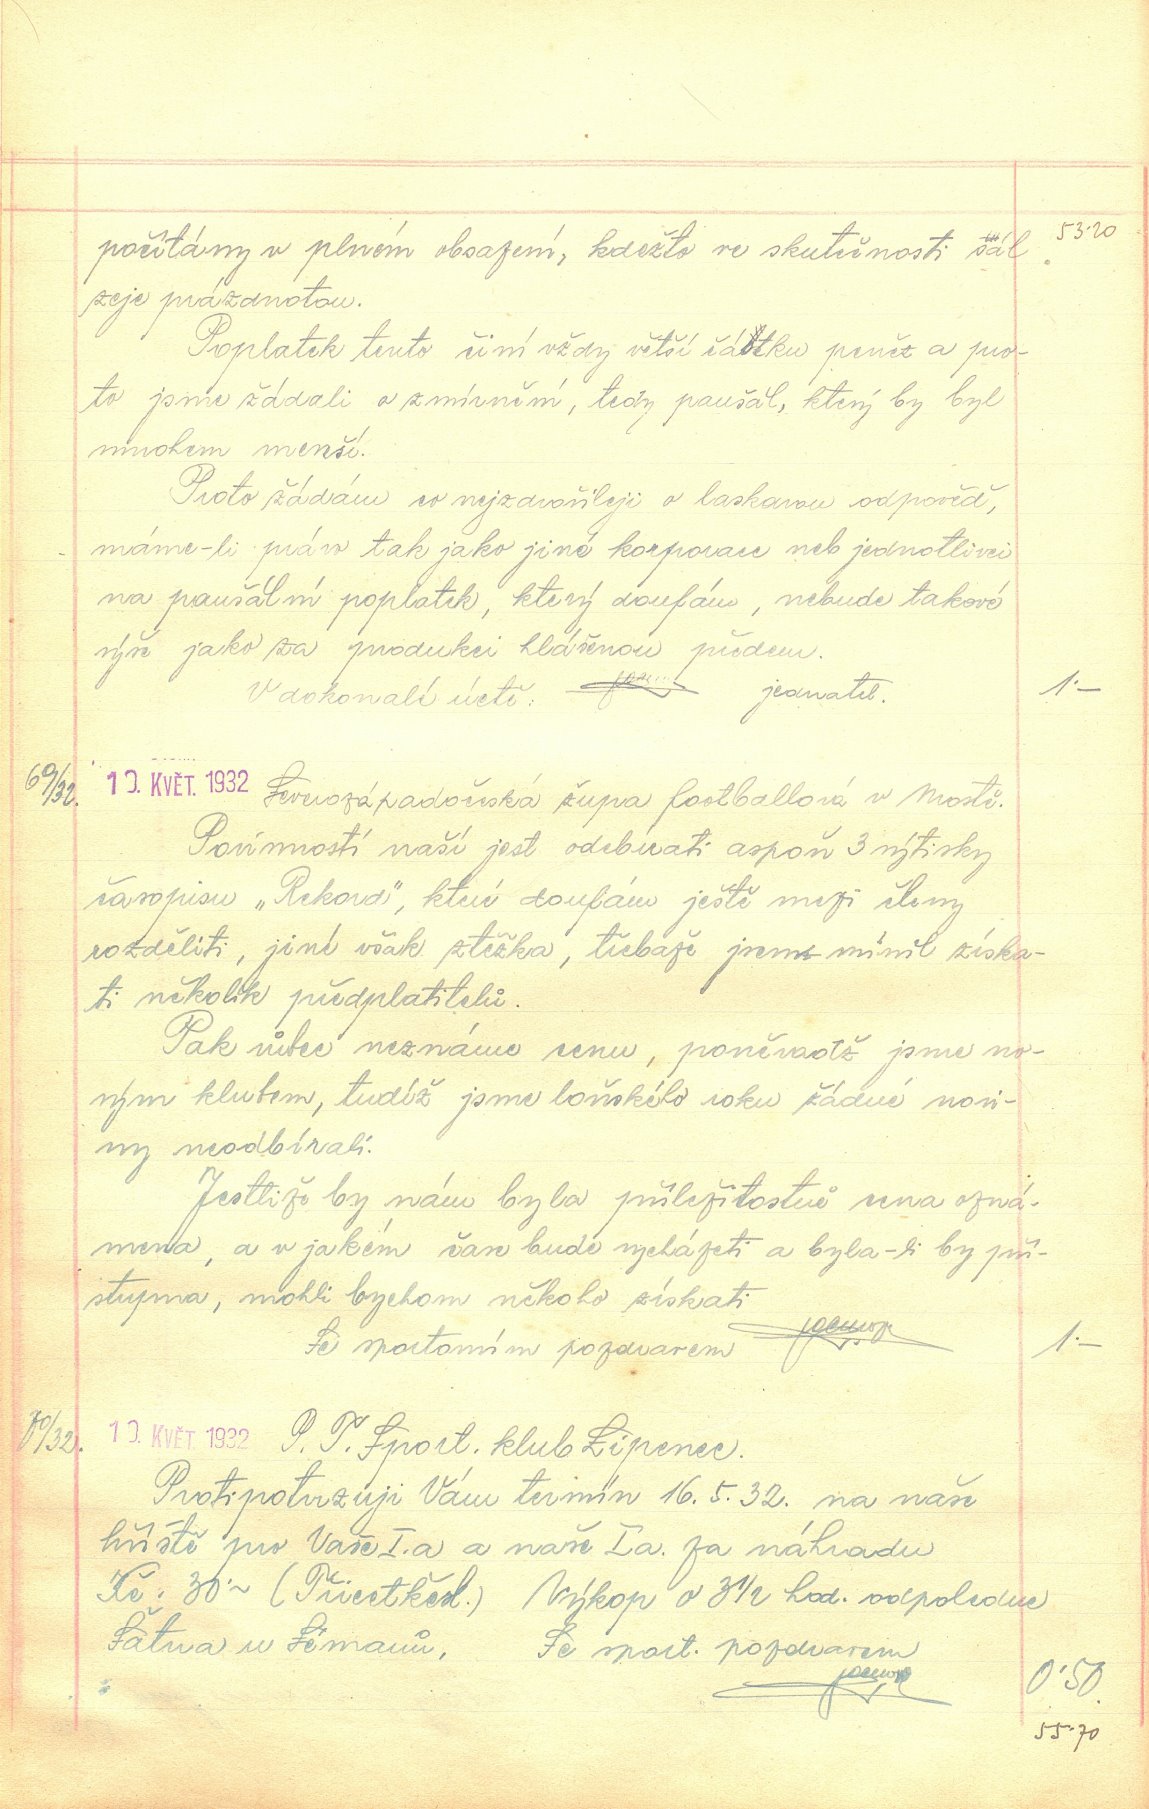 53·20
počítány v plném obsazení, kdežto ve skutečnosti sál
zeje prázdnotou.
Poplatek tento činí vždy větší částku peněz a pro-
to jsme žádali o zmírnění, tedy paušál, který by byl
mnohem menší.
Proto žádám co nejzdvořileji o laskavou odpověď,
máme-li právo tak jako jiné korporace neb jednotlivci
na paušální poplatek, který doufám, nebude takové
výše jako za produkci hlášenou předem.
V dokonalé úctě: jednatel. 1·—
69/32. 10. KVĚT. 1932 Severozápadočeská župa footballová v Mostě.
Povinností naší jest odebírati aspoň 3 výtisky
časopisu „Rekord", které doufám ještě mezi členy
rozděliti, jiné však ztěžka, třebaže jsem mínil získa-
ti několik předplatitelů.
Pak vůbec neznáme cenu, poněvadž jsme no-
vým klubem, tudíž jsme loňského roku žádné novi-
ny neodbírali.
Jestliže by nám byla příležitostně cena ozná-
mena, a v jakém čase bude vycházeti a byla-li by pří-
stupna, mohli bychom někoho získati
Se sportovním pozdravem 1·—
70/32. 10. KVĚT. 1932 P. T. Sport. klub Lipenec.
Protipotvrzuji Vám termín 16. 5. 32. na naše
hřiště pro Vaše I.a a naše I.a. za náhradu
Kč: 30·— (Třicetkčsl.) Výkop o 3½ hod. odpoledne
Šatna u Sémanů, Se sport. pozdravem
0·50
55·70